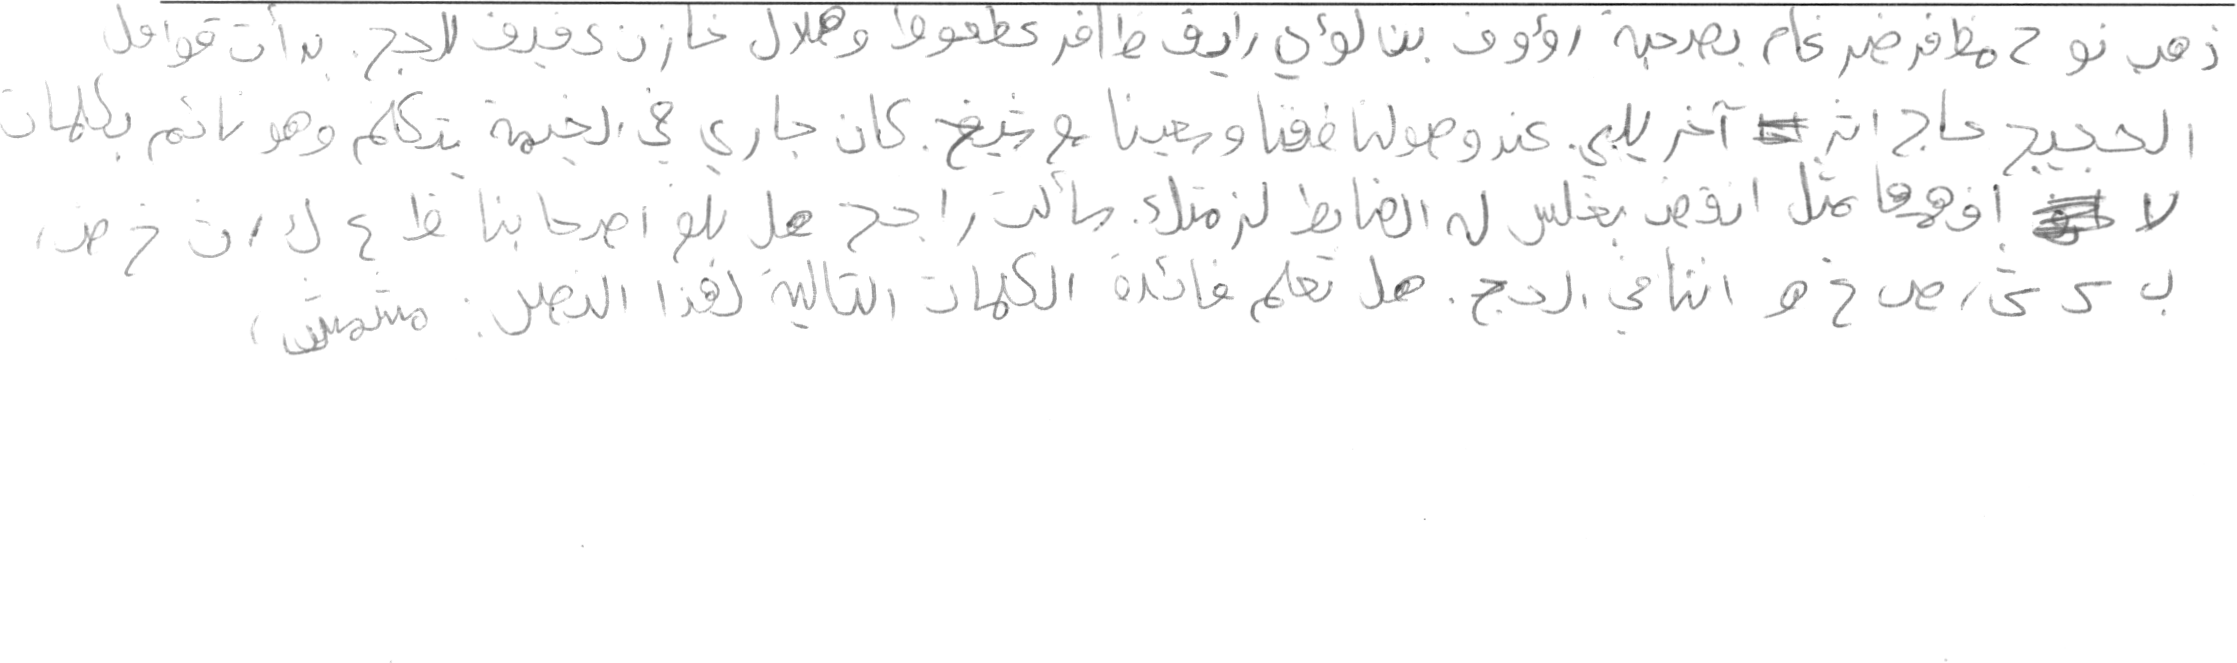 ذهب نوح مظفر ضرغام بصحبة رؤوف بن لؤي رايق ظافر عطعوط وهلال خازن عفيف للحج. بدأت قوافل
الحجيج حاج اثر آخر يلبي. عند وصولنا غفقنا وسعينا مع شيخ. كان جاري في الخيمة يتكلم وهو نائم بكلمات
لا أفهمها مثل انقض بغلس له الضابط لزمتك. سألت راجح هل بلغ أصحابنا ظ ع ك ا ن خ ض،
ب ى ش، ص خ ه اننا في الحج. هل تعلم فائدة الكلمات التالية لهذا النص: مشمش،